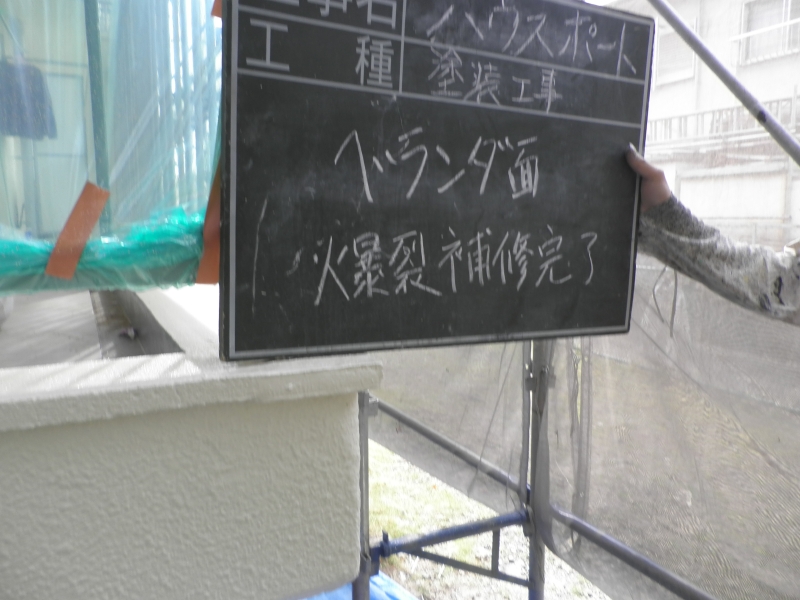 工事名 ハウスポート
工種 塗装工事
ベランダ面
爆裂補修完了